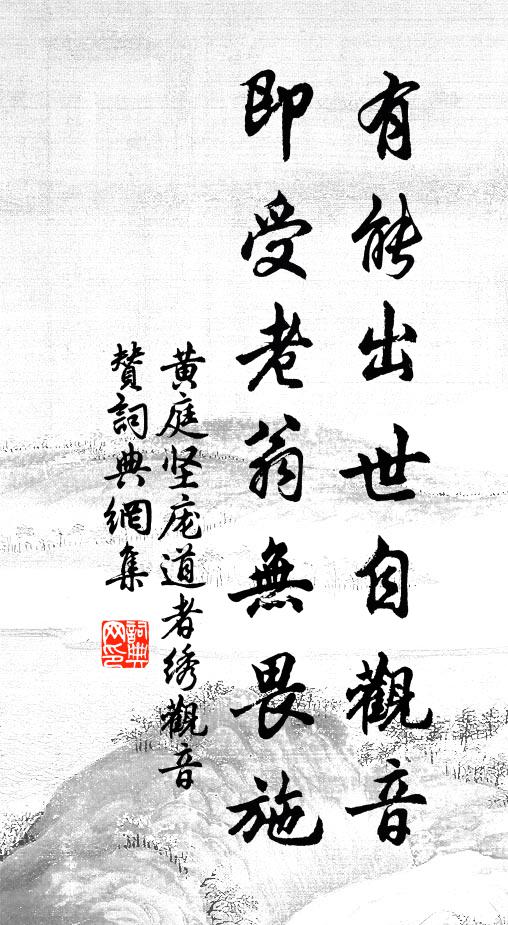 有能出世自觀音
即受老翁無畏施
黄庭坚庞道者绣觀音
贊詞典網集
詞典网印